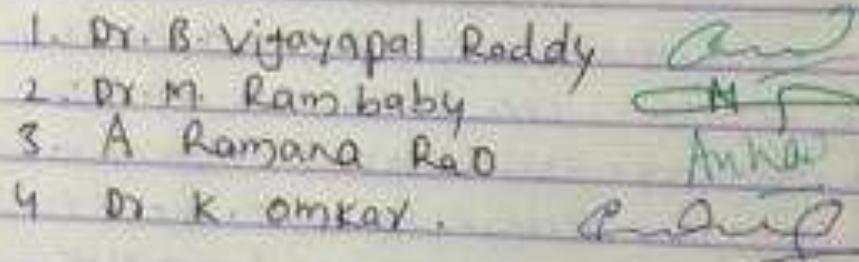 1. Dr. B. Vijayapal Reddy
2. Dr M. Rambaby
3. A Ramana RaO
4 Dr. K. omkar.